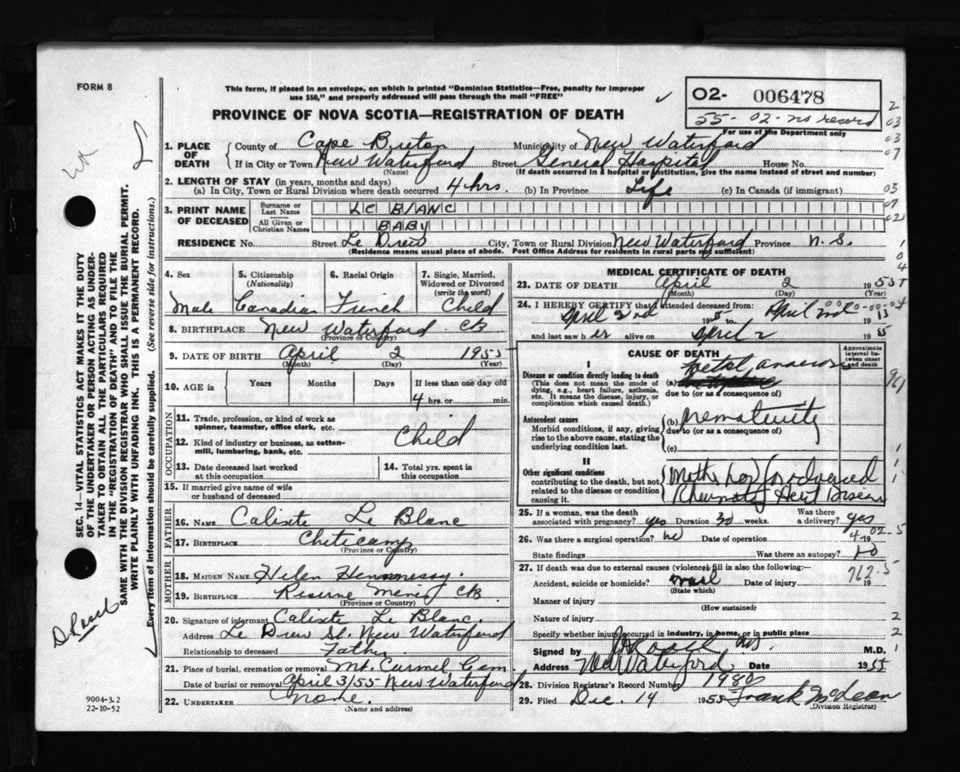 FORM 8
This form, if placed in an envelope, on which is printed "Dominion Statistics—Free, penalty for improper
use $50," and properly addressed will pass through the mail "FREE"
02- 006478
55-02-no record
For use of the Department only
PROVINCE OF NOVA SCOTIA—REGISTRATION OF DEATH
1. PLACE OF DEATH
County of Cape Breton Municipality of New Waterford
If in City or Town New Waterford Street General Hospital House No.
(Name) (If death occurred in a hospital or institution, give the name instead of street and number)
2. LENGTH OF STAY (in years, months and days)
(a) In City, Town or Rural Division where death occurred 4 hrs. (b) In Province Life (c) In Canada (if immigrant)
3. PRINT NAME OF DECEASED
Surname or Last Name LE BLANC
All Given or Christian Names BABY
RESIDENCE No. Street Le Drew City, Town or Rural Division New Waterford Province N.S.
(Residence means usual place of abode. Post Office Address for residents in rural parts not sufficient)
4. Sex 5. Citizenship (Nationality) 6. Racial Origin 7. Single, Married, Widowed or Divorced (write the word)
Male Canadian French Child
8. BIRTHPLACE New Waterford CB
(Province or Country)
9. DATE OF BIRTH April 2 1955
(Month) (Day) (Year)
10. AGE in Years Months Days If less than one day old
4 hrs. or min.
OCCUPATION
11. Trade, profession, or kind of work as
spinner, teamster, office clerk, etc.
12. Kind of industry or business, as cotton-
mill, lumbering, bank, etc.
Child
13. Date deceased last worked
at this occupation
14. Total yrs. spent in
this occupation
15. If married give name of wife
or husband of deceased
FATHER
16. NAME Calixte Le Blanc
17. BIRTHPLACE Cheticamp
(Province or Country)
MOTHER
18. MAIDEN NAME Helen Hennessy.
19. BIRTHPLACE Reserve Mines CB
(Province or Country)
20. Signature of informant Calixte Le Blanc.
Address Le Drew St. New Waterford
Relationship to deceased Father.
21. Place of burial, cremation or removal Mt. Carmel Cem.
Date of burial or removal April 3/55 New Waterford
22. UNDERTAKER none.
(Name and address)
MEDICAL CERTIFICATE OF DEATH
23. DATE OF DEATH April 2 1955
(Month) (Day) (Year)
24. I HEREBY CERTIFY that I attended deceased from:
April 2nd 1955 April 2nd 1955
and last saw h er alive on April 2 1955
CAUSE OF DEATH
Approximate interval between onset and death
Disease or condition directly leading to death
(This does not mean the mode of
dying, e.g., heart failure, asthenia,
etc. It means the disease, injury, or
complication which caused death.)
(a) Foetal
due to (or as a consequence of)
Antecedent causes
Morbid conditions, if any, giving
rise to the above cause, stating the
underlying condition last.
(b) Prematurity
due to (or as a consequence of)
(c)
II
Other significant conditions
contributing to the death, but not
related to the disease or condition
causing it.
Mother has advanced
Rheumatic Heart Disease
25. If a woman, was the death
associated with pregnancy? yes Duration 30 weeks. Was there a delivery? yes
26. Was there a surgical operation? no Date of operation 19
State findings Was there an autopsy? no
27. If death was due to external causes (violence) fill in also the following:—
Accident, suicide or homicide? Date of injury 19
(State which)
Manner of injury
(How sustained)
Nature of injury
Specify whether injury occurred in industry, in home, or in public place
Signed by M.D.
Address New Waterford Date 1955
28. Division Registrar's Record Number 1980
29. Filed Dec. 14 1955 Frank McLean
(Division Registrar)
SEC. 14—VITAL STATISTICS ACT MAKES IT THE DUTY
OF THE UNDERTAKER OR PERSON ACTING AS UNDER-
TAKER TO OBTAIN ALL THE PARTICULARS REQUIRED
IN THE "REGISTRATION OF DEATH" AND TO FILE THE
SAME WITH THE DIVISION REGISTRAR WHO SHALL ISSUE THE BURIAL PERMIT.
WRITE PLAINLY WITH UNFADING INK. THIS IS A PERMANENT RECORD.
Every item of information should be carefully supplied. (See reverse side for instructions.)
9004-3.2
22-10-52